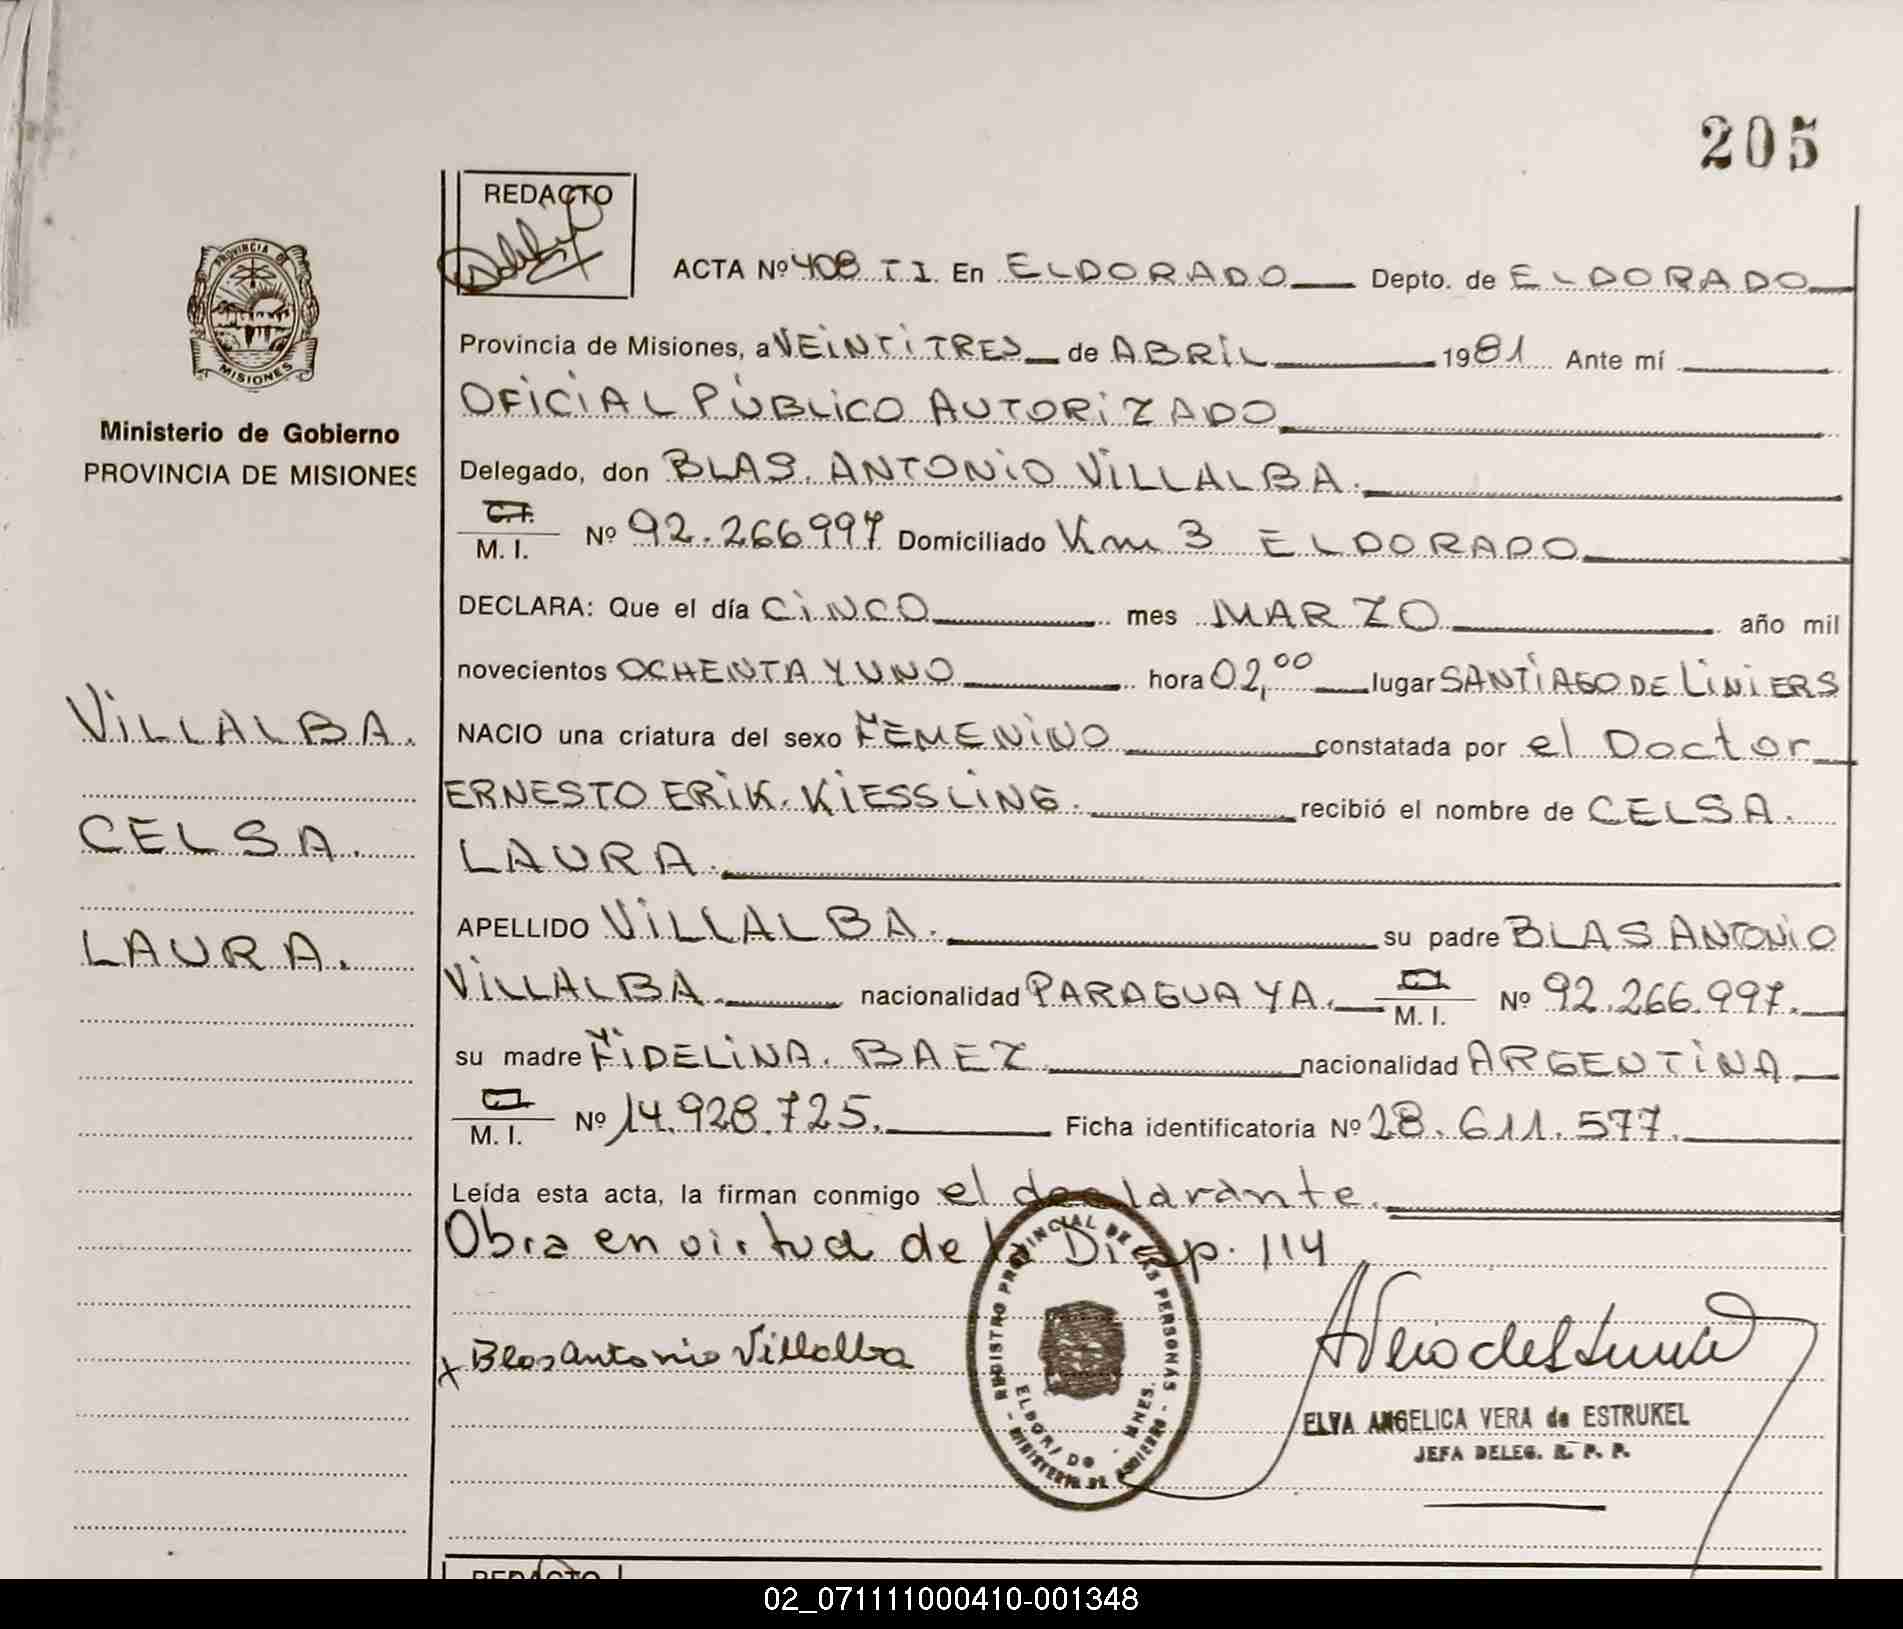 205
REDACTO
ACTA Nº 408 T I. En ELDORADO Depto. de ELDORADO
Provincia de Misiones, a VEINTITRES de ABRIL 1981 Ante mí
OFICIAL PÚBLICO AUTORIZADO
Delegado, don BLAS. ANTONIO VILLALBA.
C.I.
M. I. Nº 92.266997 Domiciliado Km 3 ELDORADO
DECLARA: Que el día CINCO mes MARZO año mil
novecientos OCHENTA Y UNO hora 02,00 lugar SANTIAGO DE LINIERS
NACIO una criatura del sexo FEMENINO constatada por el Doctor
ERNESTO ERIK. KIESSLING. recibió el nombre de CELSA.
LAURA.
APELLIDO VILLALBA. su padre BLAS ANTONIO
VILLALBA. nacionalidad PARAGUAYA. M. I. Nº 92.266.997.
su madre FIDELINA. BAEZ nacionalidad ARGENTINA
M. I. Nº 14.928.725. Ficha identificatoria Nº 28.611.577.
Leída esta acta, la firman conmigo el declarante.
Obra en virtud de la Disp. 114
x Blas Antonio Villalba
REGISTRO PROVINCIAL DE LAS PERSONAS
ELDORADO - MNES.
- MINISTERIO DE GOBIERNO -
ELVA ANGELICA VERA de ESTRUKEL
JEFA DELEG. R. P. P.
PROVINCIA DE
MISIONES
Ministerio de Gobierno
PROVINCIA DE MISIONES
VILLALBA.
CELSA.
LAURA.
REDACTO
02_071111000410-001348